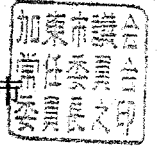 加東市議会
常任委員会
委員長之印